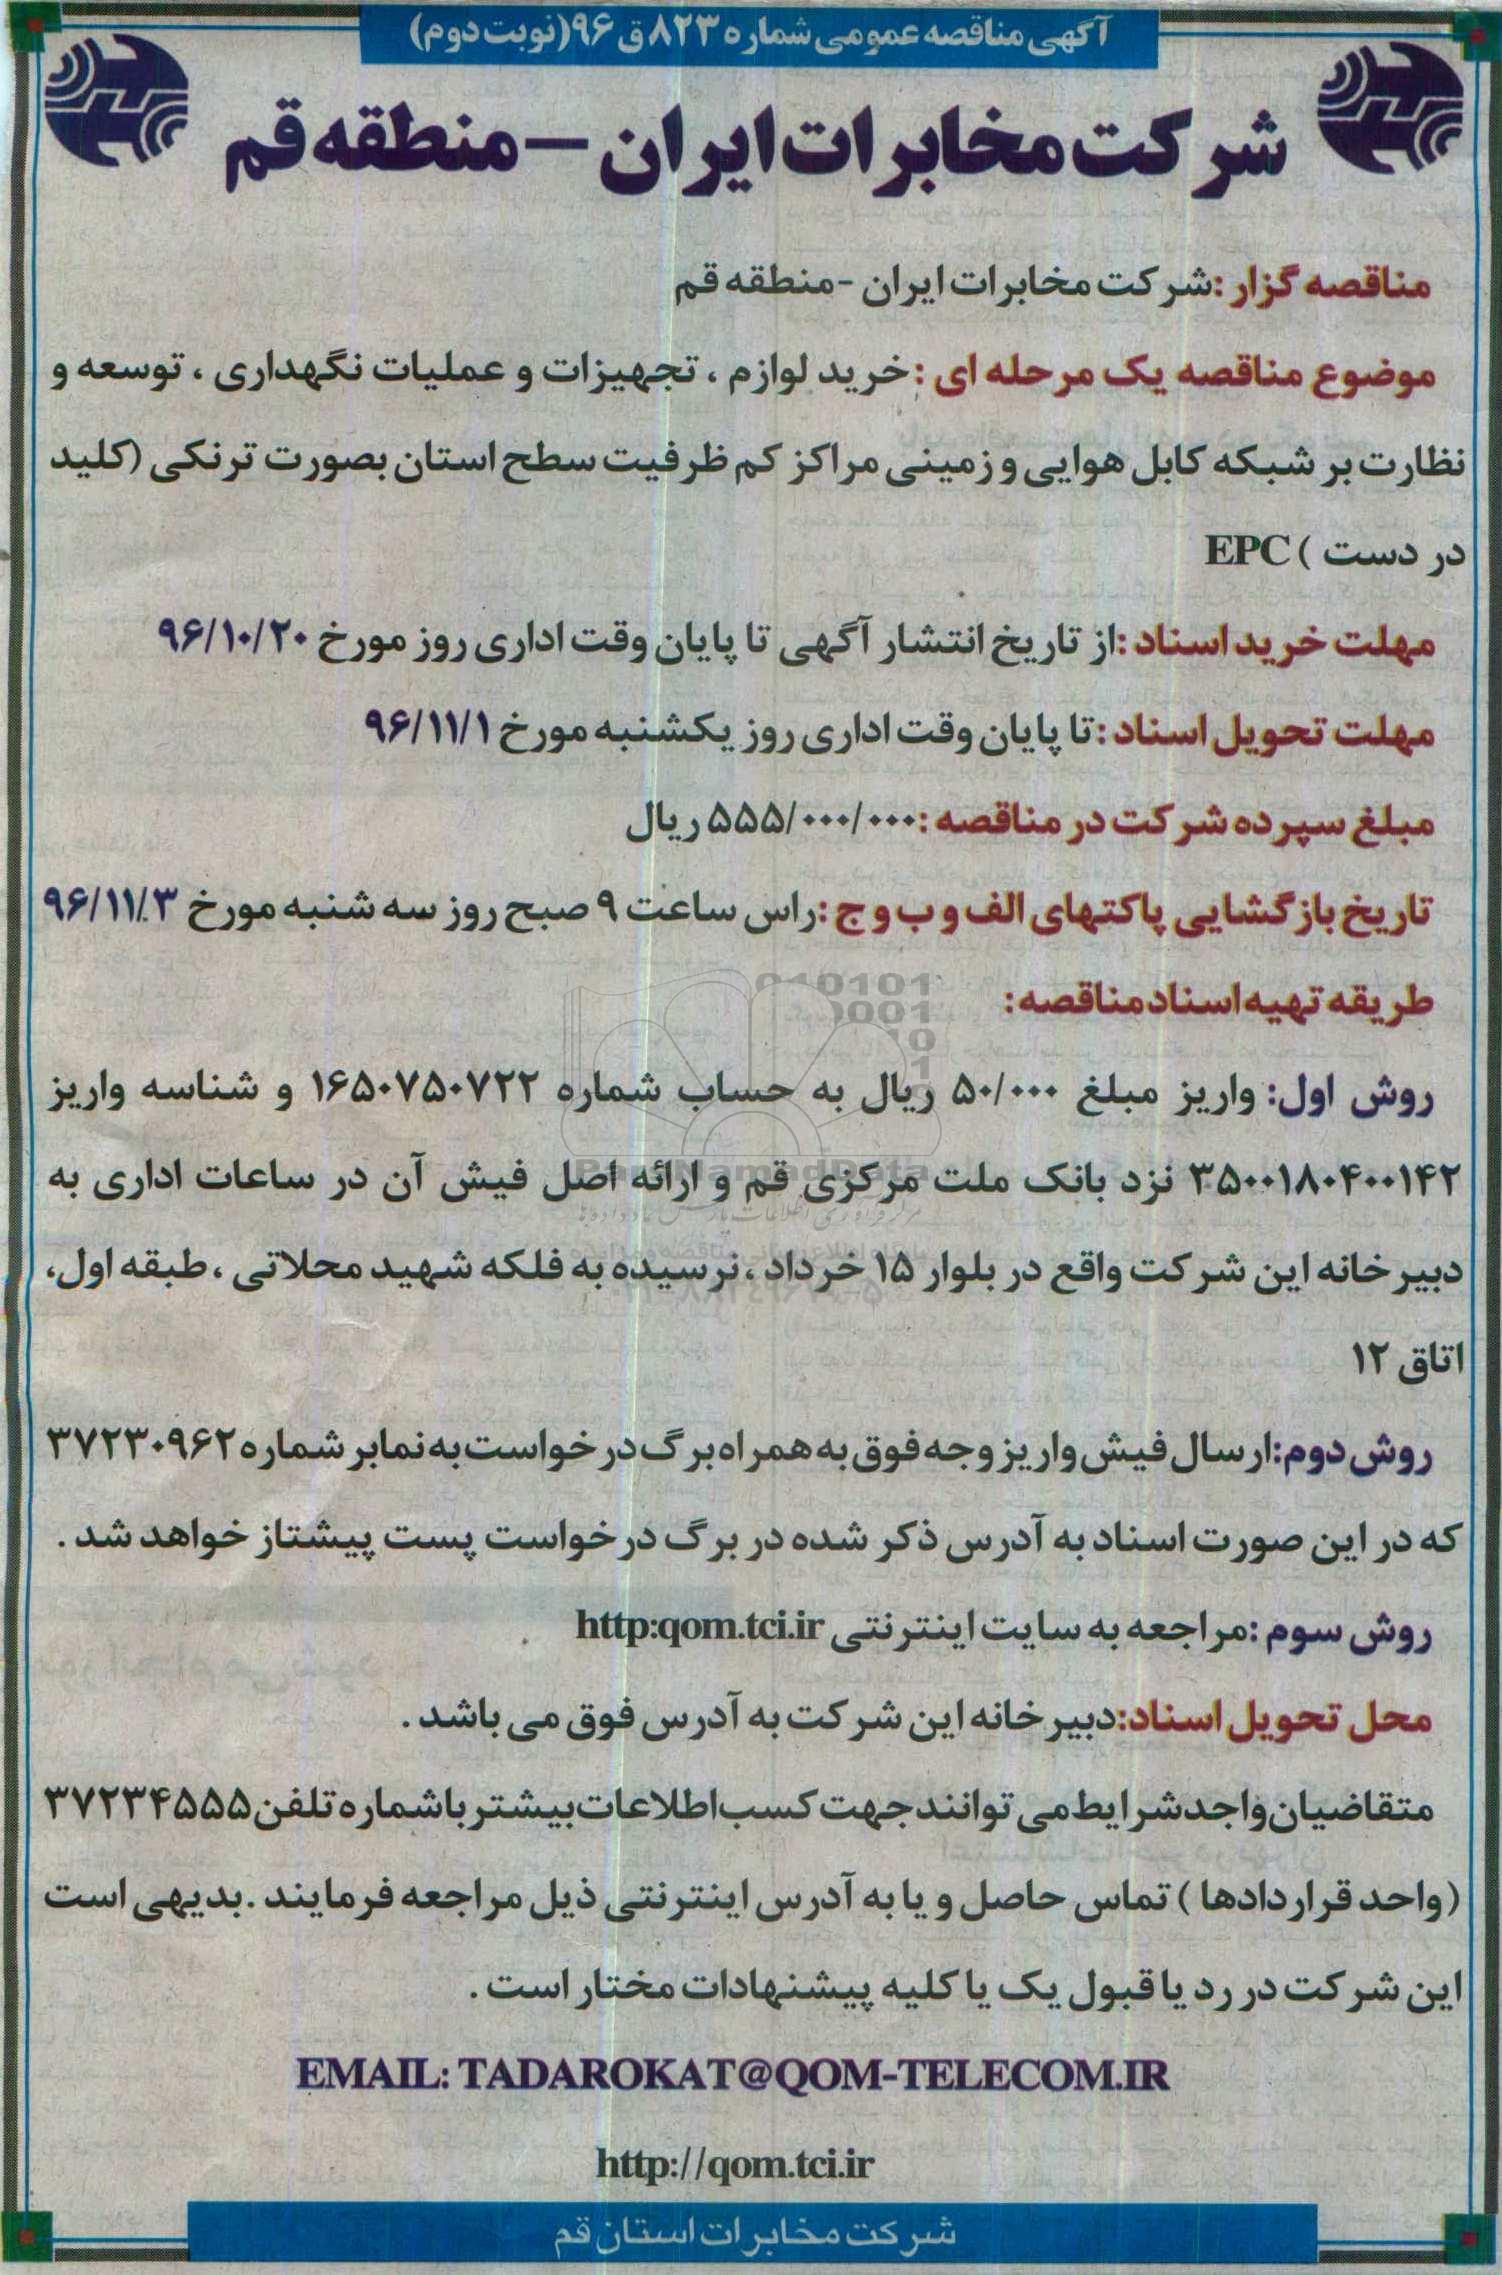 آگهی مناقصه عمومی شماره ۸۲۳ ق ۹۶(نوبت دوم)
شرکت مخابرات ایران – منطقه قم
مناقصه گزار :شرکت مخابرات ایران -منطقه قم
موضوع مناقصه یک مرحله ای : خرید لوازم ، تجهیزات و عملیات نگهداری ، توسعه و
نظارت بر شبکه کابل هوایی و زمینی مراکز کم ظرفیت سطح استان بصورت ترنکی (کلید
در دست ) EPC
مهلت خرید اسناد :از تاریخ انتشار آگهی تا پایان وقت اداری روز مورخ ۹۶/۱۰/۲۰
مهلت تحویل اسناد :تا پایان وقت اداری روز یکشنبه مورخ ۹۶/۱۱/۱
مبلغ سپرده شرکت در مناقصه :۵۵۵/۰۰۰/۰۰۰ ریال
تاریخ بازگشایی پاکتهای الف و ب و ج :راس ساعت ۹ صبح روز سه شنبه مورخ ۹۶/۱۱/۳
طریقه تهیه اسناد مناقصه:
روش اول: واریز مبلغ ۵۰/۰۰۰ ریال به حساب شماره ۱۶۵۰۷۵۰۷۲۲ و شناسه واریز
۳۵۰۰۱۸۰۴۰۰۱۴۲ نزد بانک ملت مرکزی قم و ارائه اصل فیش آن در ساعات اداری به
دبیرخانه این شرکت واقع در بلوار ۱۵ خرداد ،نرسیده به فلکه شهید محلاتی ،طبقه اول،
اتاق ۱۲
روش دوم:ارسال فیش واریز وجه فوق به همراه برگ درخواست به نمابر شماره ۳۷۲۳۰۹۶۲
که در این صورت اسناد به آدرس ذکر شده در برگ درخواست پست پیشتاز خواهد شد .
روش سوم :مراجعه به سایت اینترنتی http:qom.tci.ir
محل تحویل اسناد:دبیرخانه این شرکت به آدرس فوق می باشد .
متقاضیان واجد شرایط می توانند جهت کسب اطلاعات بیشتر با شماره تلفن ۳۷۲۳۴۵۵۵
(واحد قراردادها ) تماس حاصل و یا به آدرس اینترنتی ذیل مراجعه فرمایند .بدیهی است
این شرکت در رد یا قبول یک یا کلیه پیشنهادات مختار است .
EMAIL: TADAROKAT@QOM-TELECOM.IR
http://qom.tci.ir
شرکت مخابرات استان قم